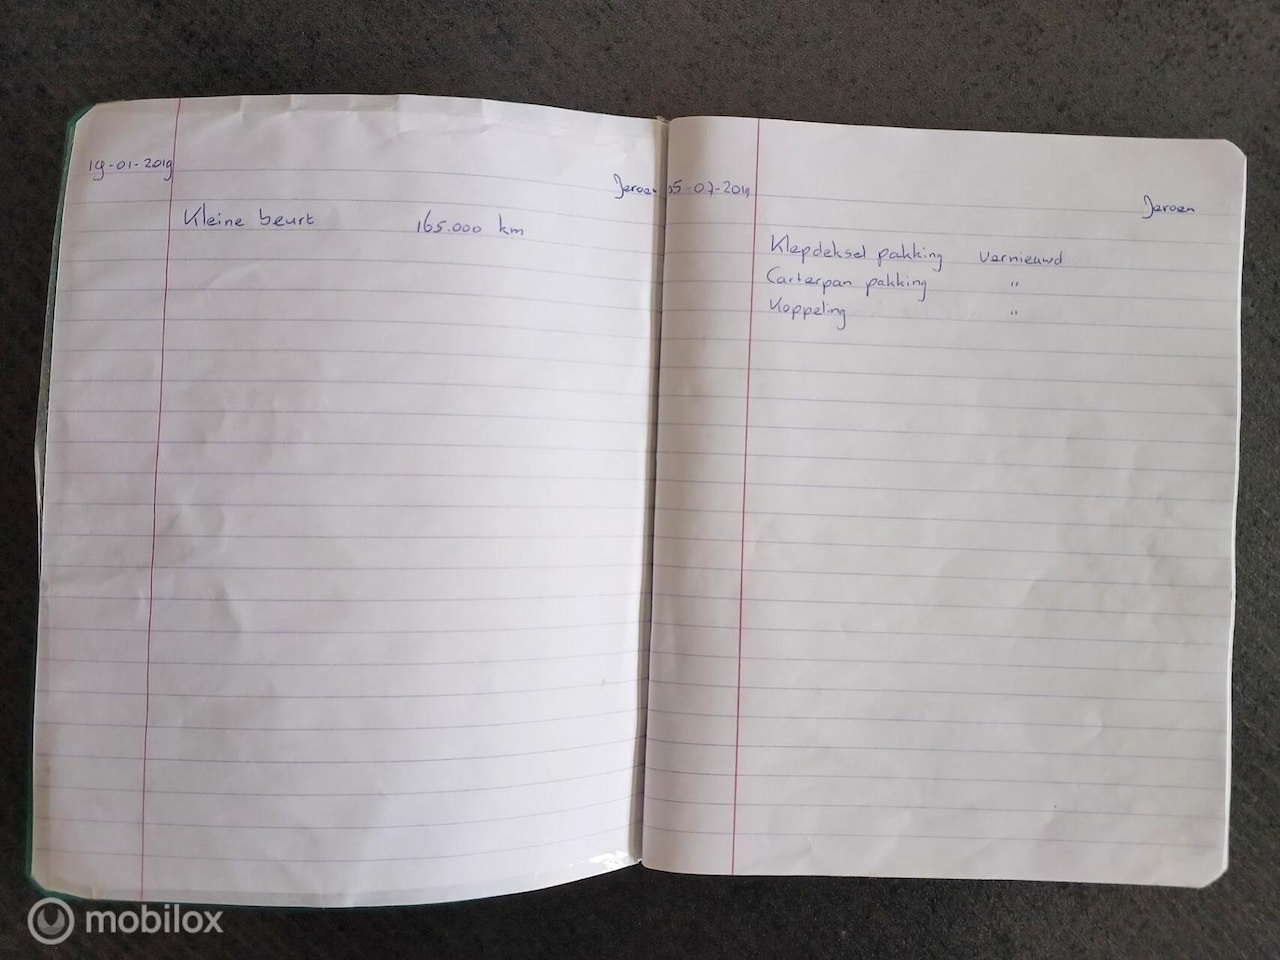 19-01-2019
Jeroen
Kleine beurt 165.000 km
05-07-2019
Jeroen
Klepdeksel pakking vernieuwd
Carterpan pakking "
Koppeling "
mobilox